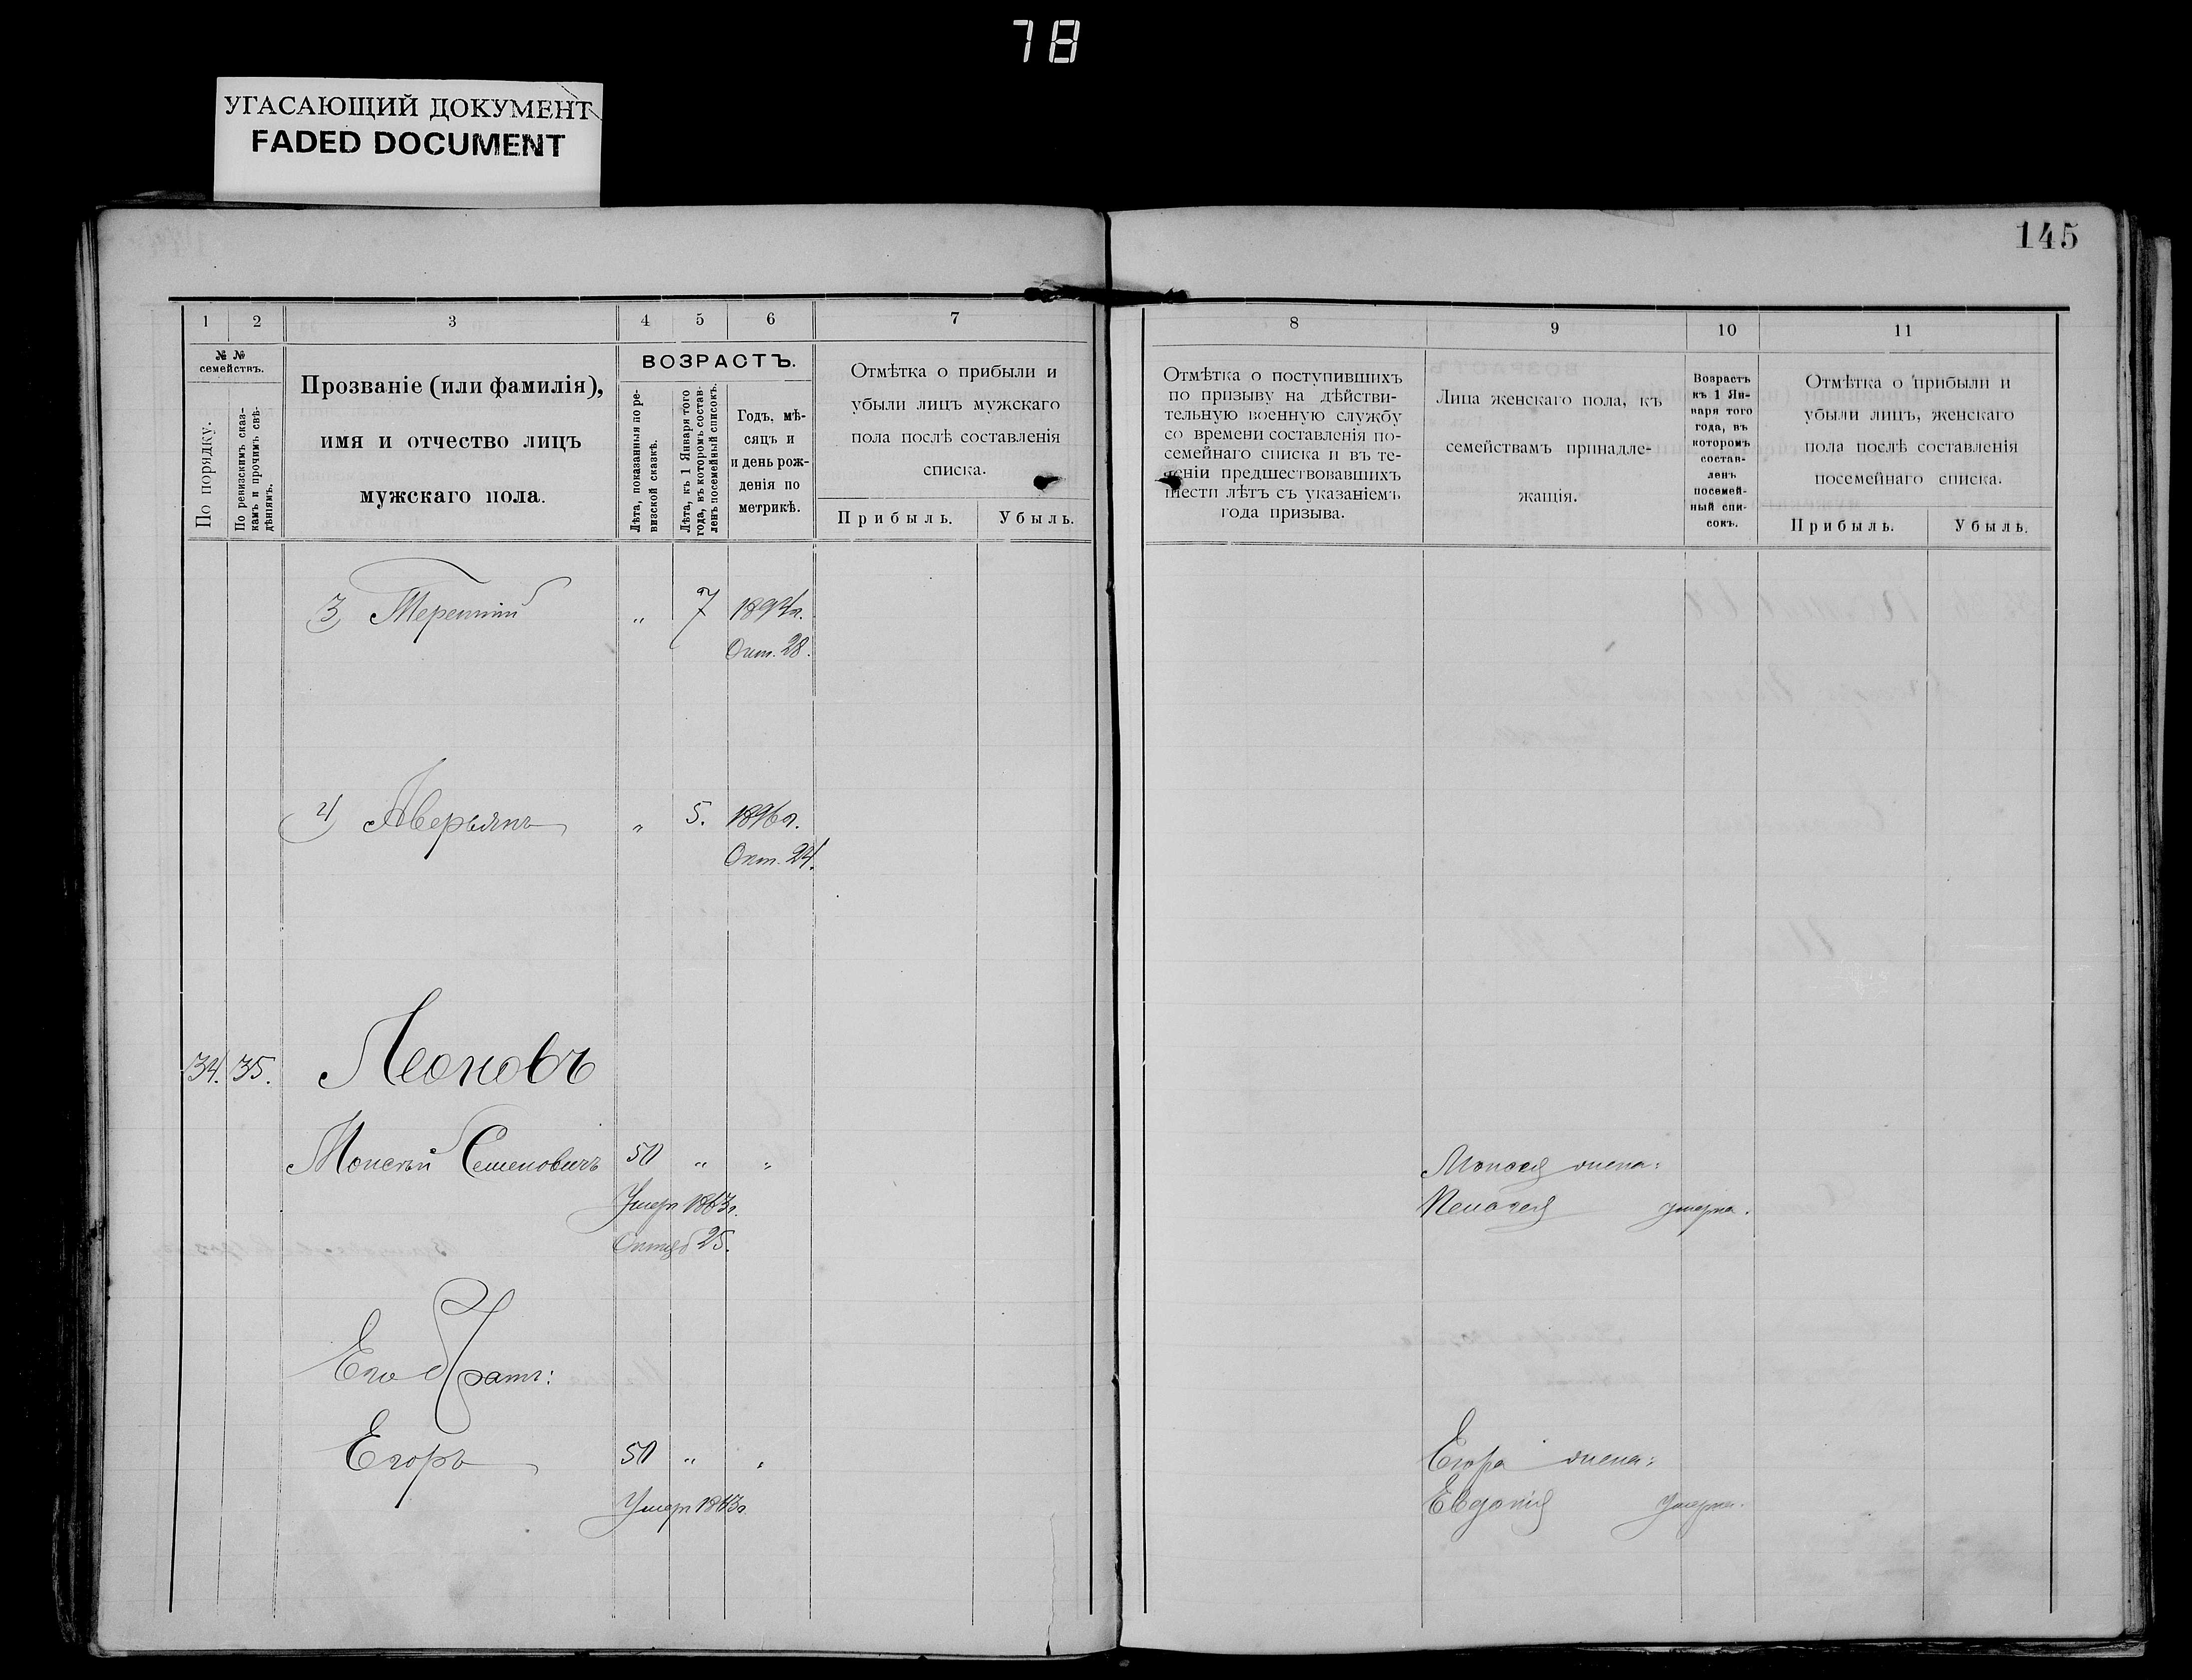 78
УГАСАЮЩИЙ ДОКУМЕНТ
FADED DOCUMENT
145
1 2 3 4 5 6 7
№ № семействъ.
По порядку.
По ревизскимъ сказ-
камъ и прочимъ свѣ-
дѣніямъ.
Прозваніе (или фамилія),
имя и отчество лицъ
мужскаго пола.
ВОЗРАСТЪ.
Лѣта, показанныя по ре-
визской сказкѣ.
Лѣта, къ 1 Января того
года, въ которомъ состав-
ленъ посемейный списокъ.
Годъ, мѣ-
сяцъ и
и день рож-
денія по
метрикѣ.
Отмѣтка о прибыли и
убыли лицъ мужскаго
пола послѣ составленія
списка.
Прибыль. Убыль.
8 9 10 11
Отмѣтка о поступившихъ
по призыву на дѣйстви-
тельную военную службу
со времени составленія по-
семейнаго списка и въ те-
ченіи предшествовавшихъ
шести лѣтъ съ указаніемъ
года призыва.
Лица женскаго пола, къ
семействамъ принадле-
жащія.
Возрастъ
къ 1 Ян-
варя того
года, въ
которомъ
состав-
ленъ
посемей-
ный спи-
сокъ.
Отмѣтка о прибыли и
убыли лицъ, женскаго
пола послѣ составленія
посемейнаго списка.
Прибыль. Убыль.
3) Терентій " 7 1894г.
Окт. 28.
4) Аверьянъ " 5. 1896г.
Окт. 24.
34. 35. Леоновъ
Моисей Семеновичъ 50 " "
Умеръ 1863г.
Октяб 25.
Моисея жена:
Пелагея умерла.
Его братъ:
Егоръ 50 " "
Умеръ
Егора жена:
Евдокія умерла.